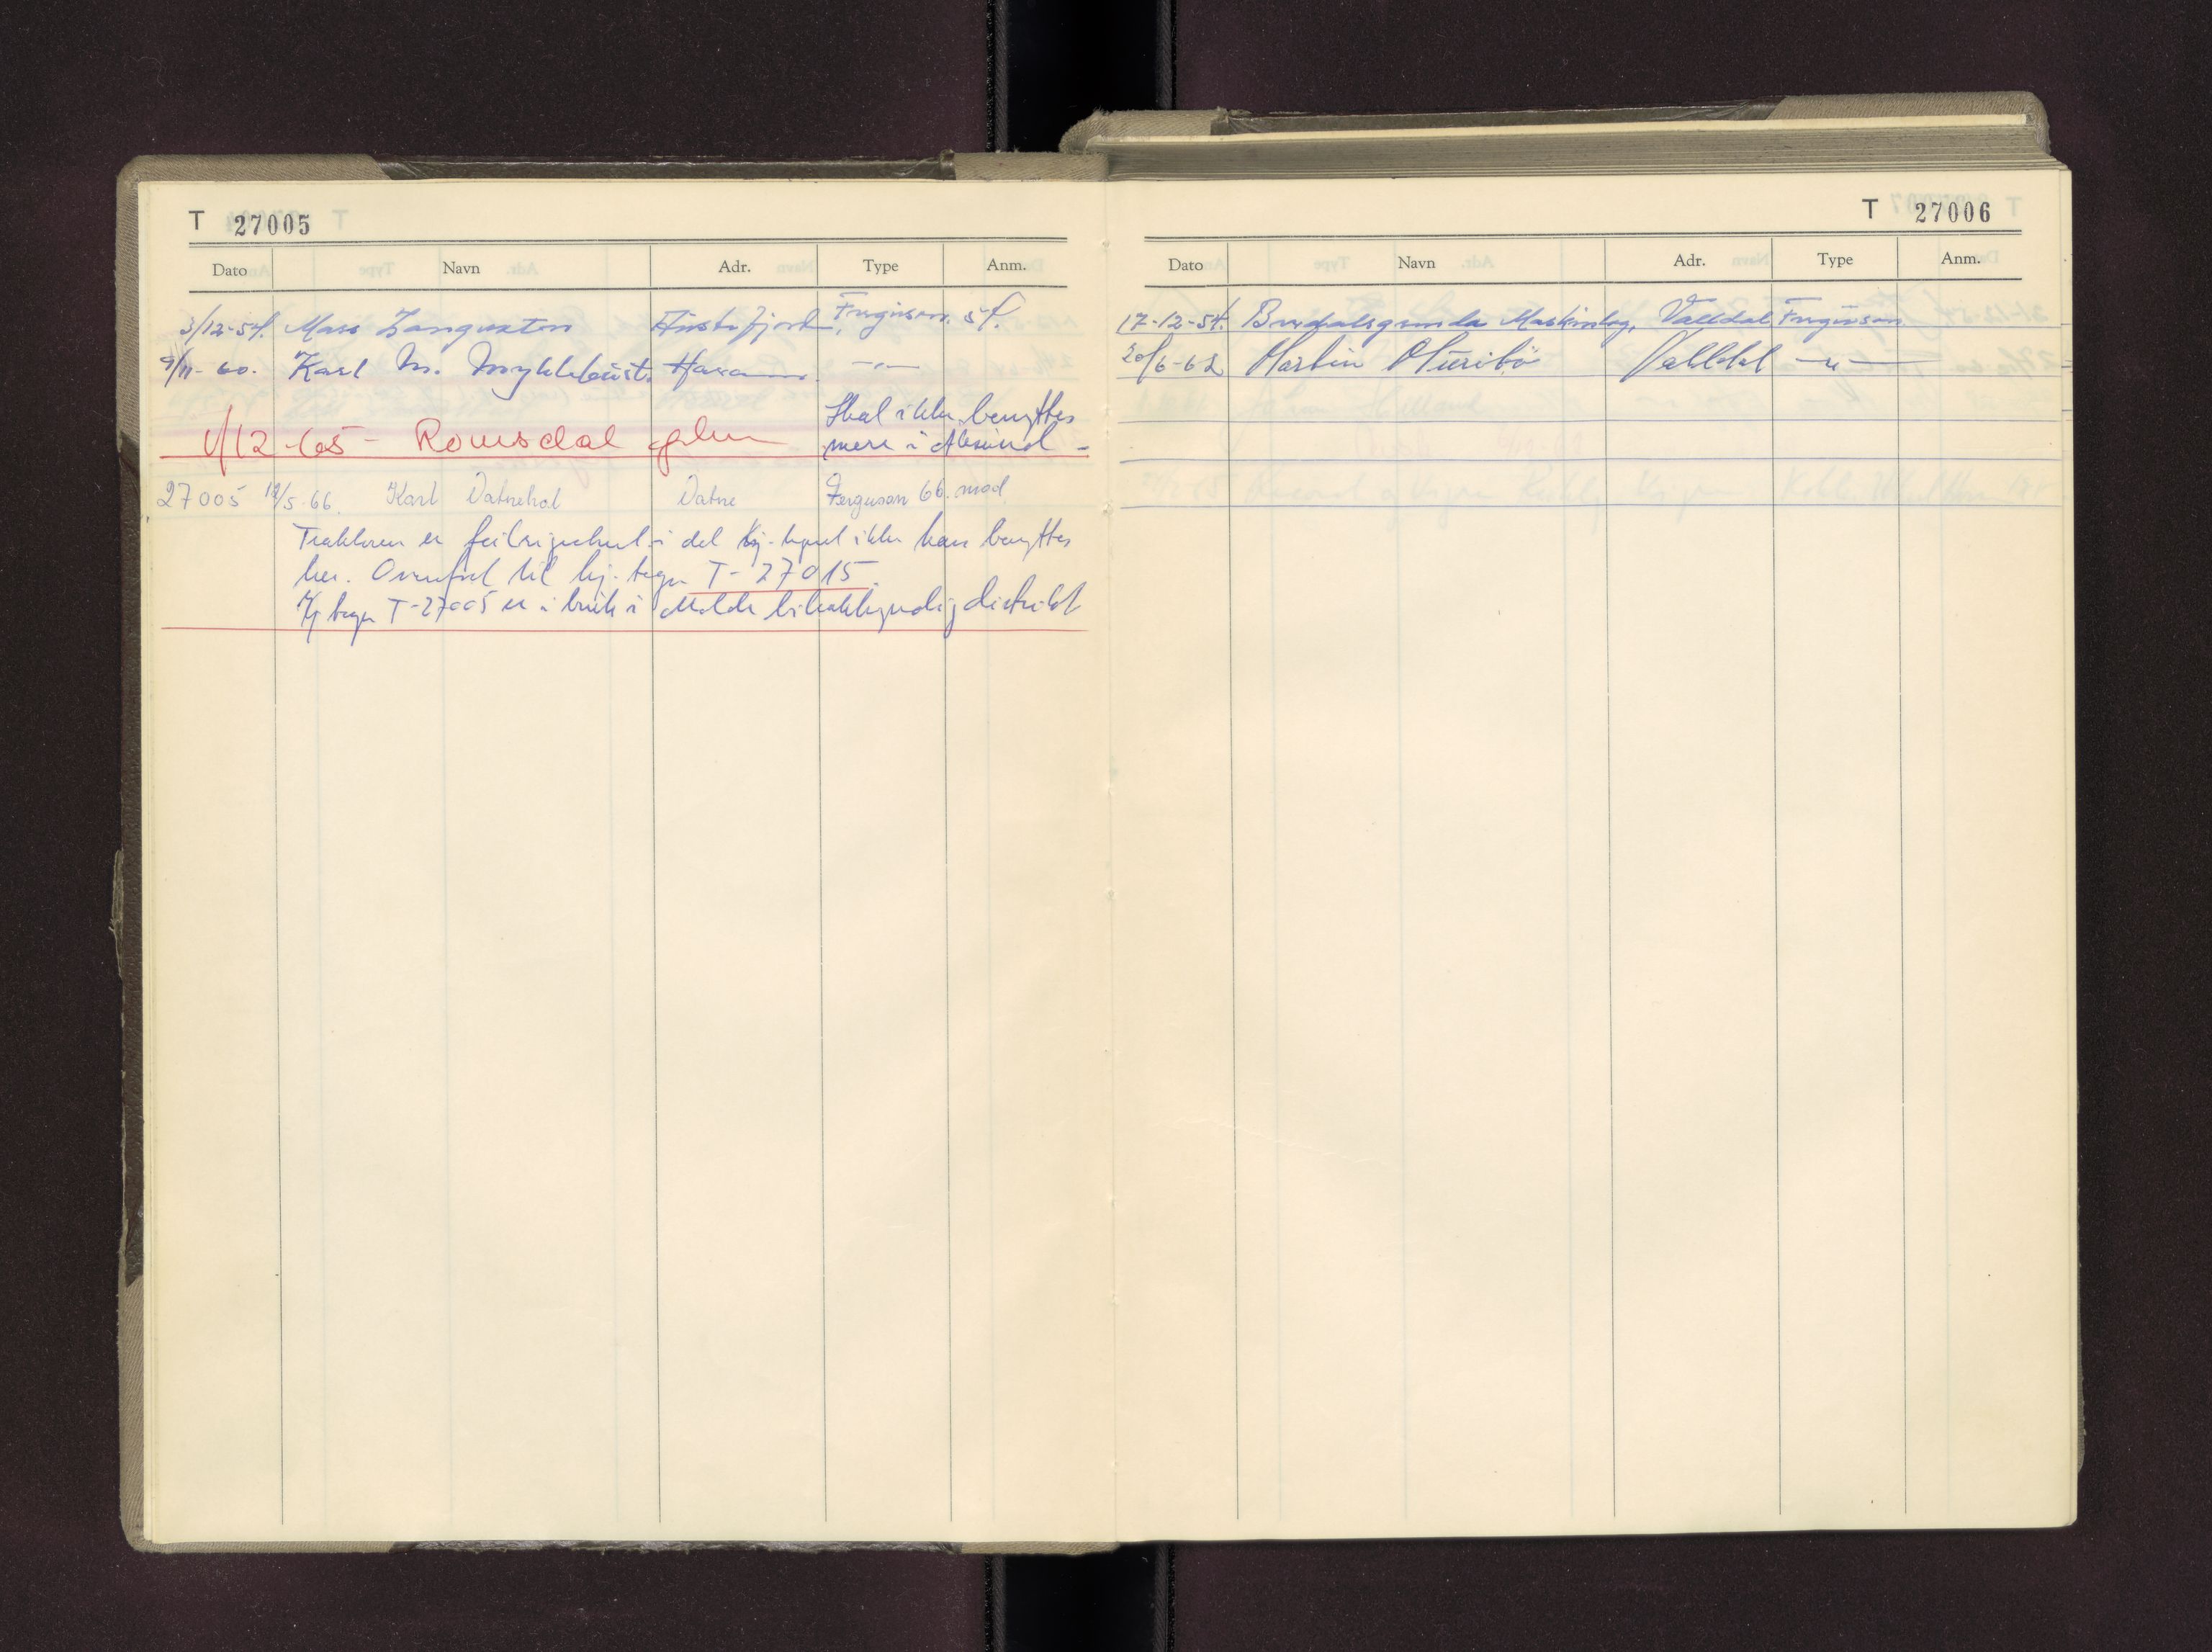 T 27005
Dato Navn Adr. Type Anm.
3/12-54. Mass Ferguson. 54.
9/11-60. Karl M. Myklebust. Haram. -"-
Skal ikke benyttes
1/12-65- Romsdal mere i Ålesund -
27005 12/5-66. Karl Vatnehol Vatne Ferguson 66. mod
Traktoren er i det kj. ikke kan benyttes
her. til kj. tegn T-27015.
Kj tegn T-27005 er i bruk i Molde distrikt
T 27006
Dato Navn Adr. Type Anm.
17-12-54. Maskinlag, Valldal, Ferguson
20/6-62 Martin Muribø Valldal -"-